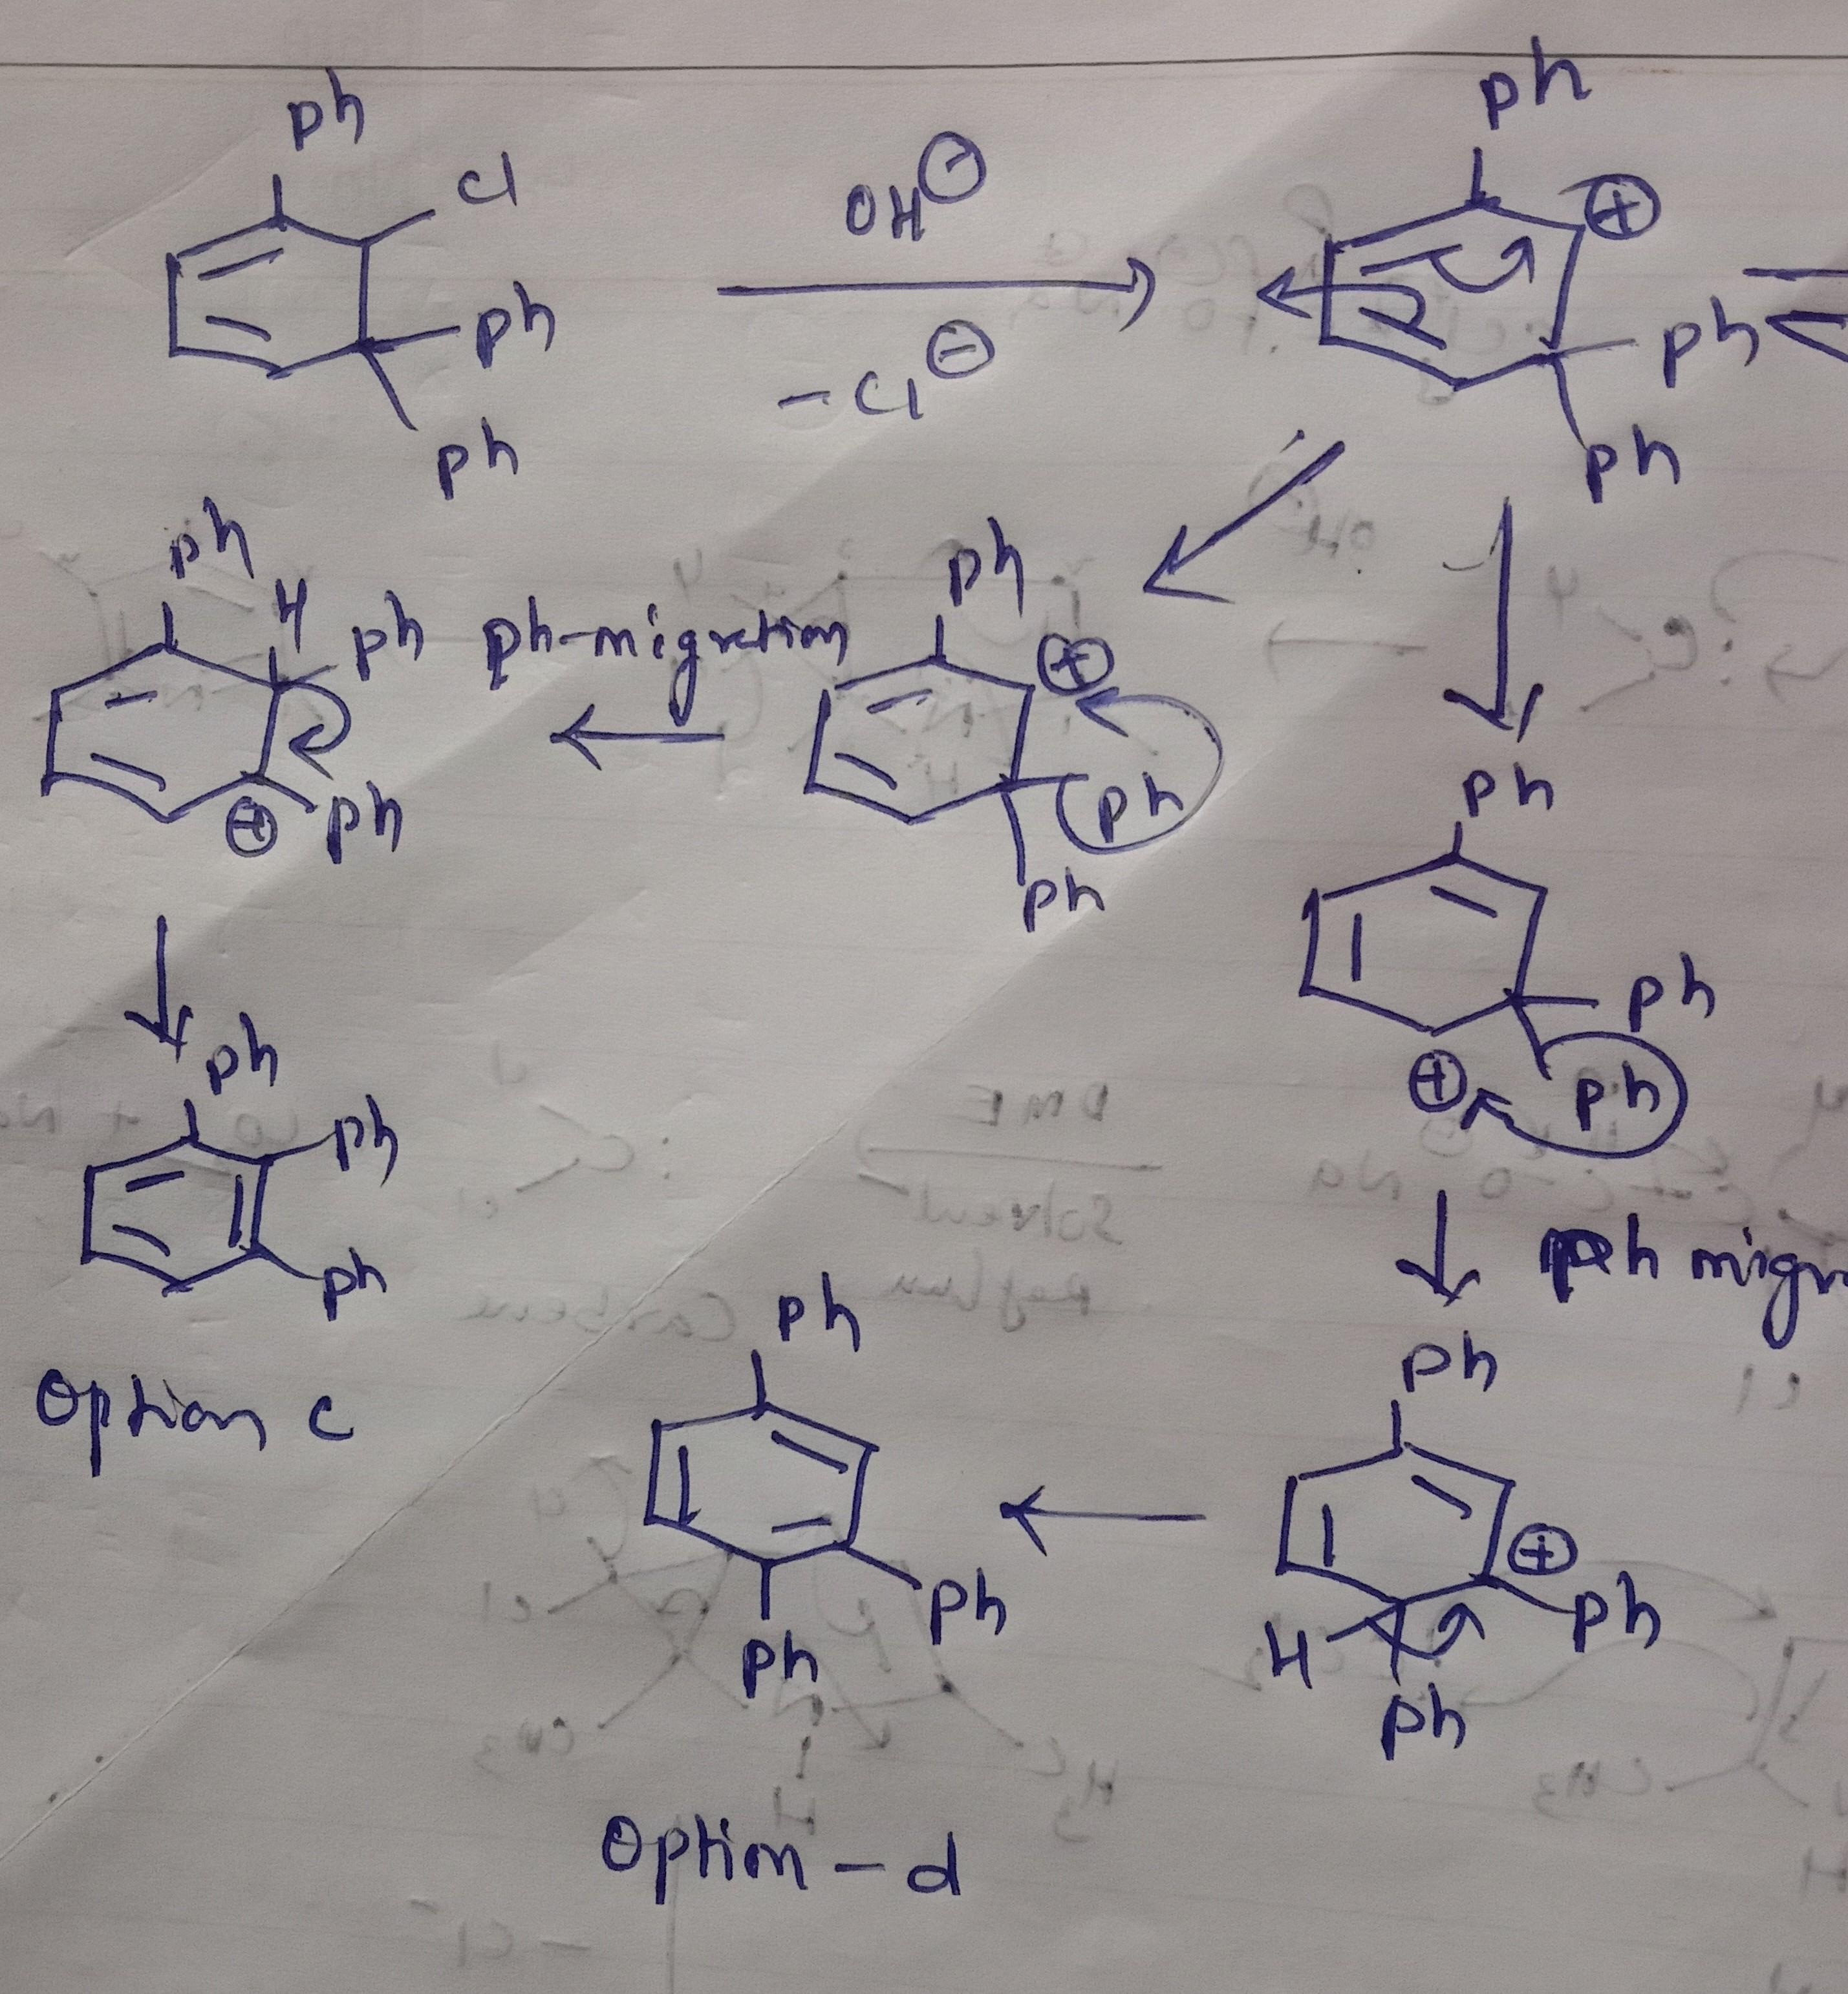 ph
Cl
ph
ph
OH⊖
-Cl⊖
ph
⊕
ph
ph
ph
H
ph
⊕
ph
ph-migration
ph
⊕
ph
ph
ph
ph
⊕
ph
ph
ph
ph
Option c
ph migr
ph
⊕
ph
H
ph
ph
ph
ph
Option - d